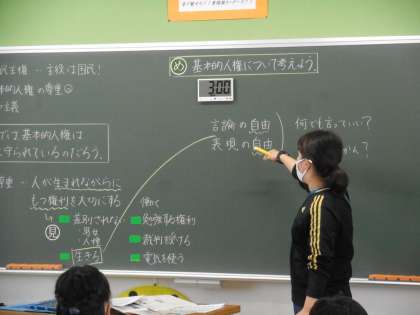 め 基本的人権について考えよう。
3:00
民主権…主役は国民!
本的人権の尊重
主義
ずは基本的人権は
守られているのだろう。
尊重…人が生まれながらに
もつ権利を大切にする
見
差別されない
・男女
・人種
生きる
働く
勉強する権利
裁判を受ける
電気を使う
言論の自由
表現の自由
何でも言っていい?